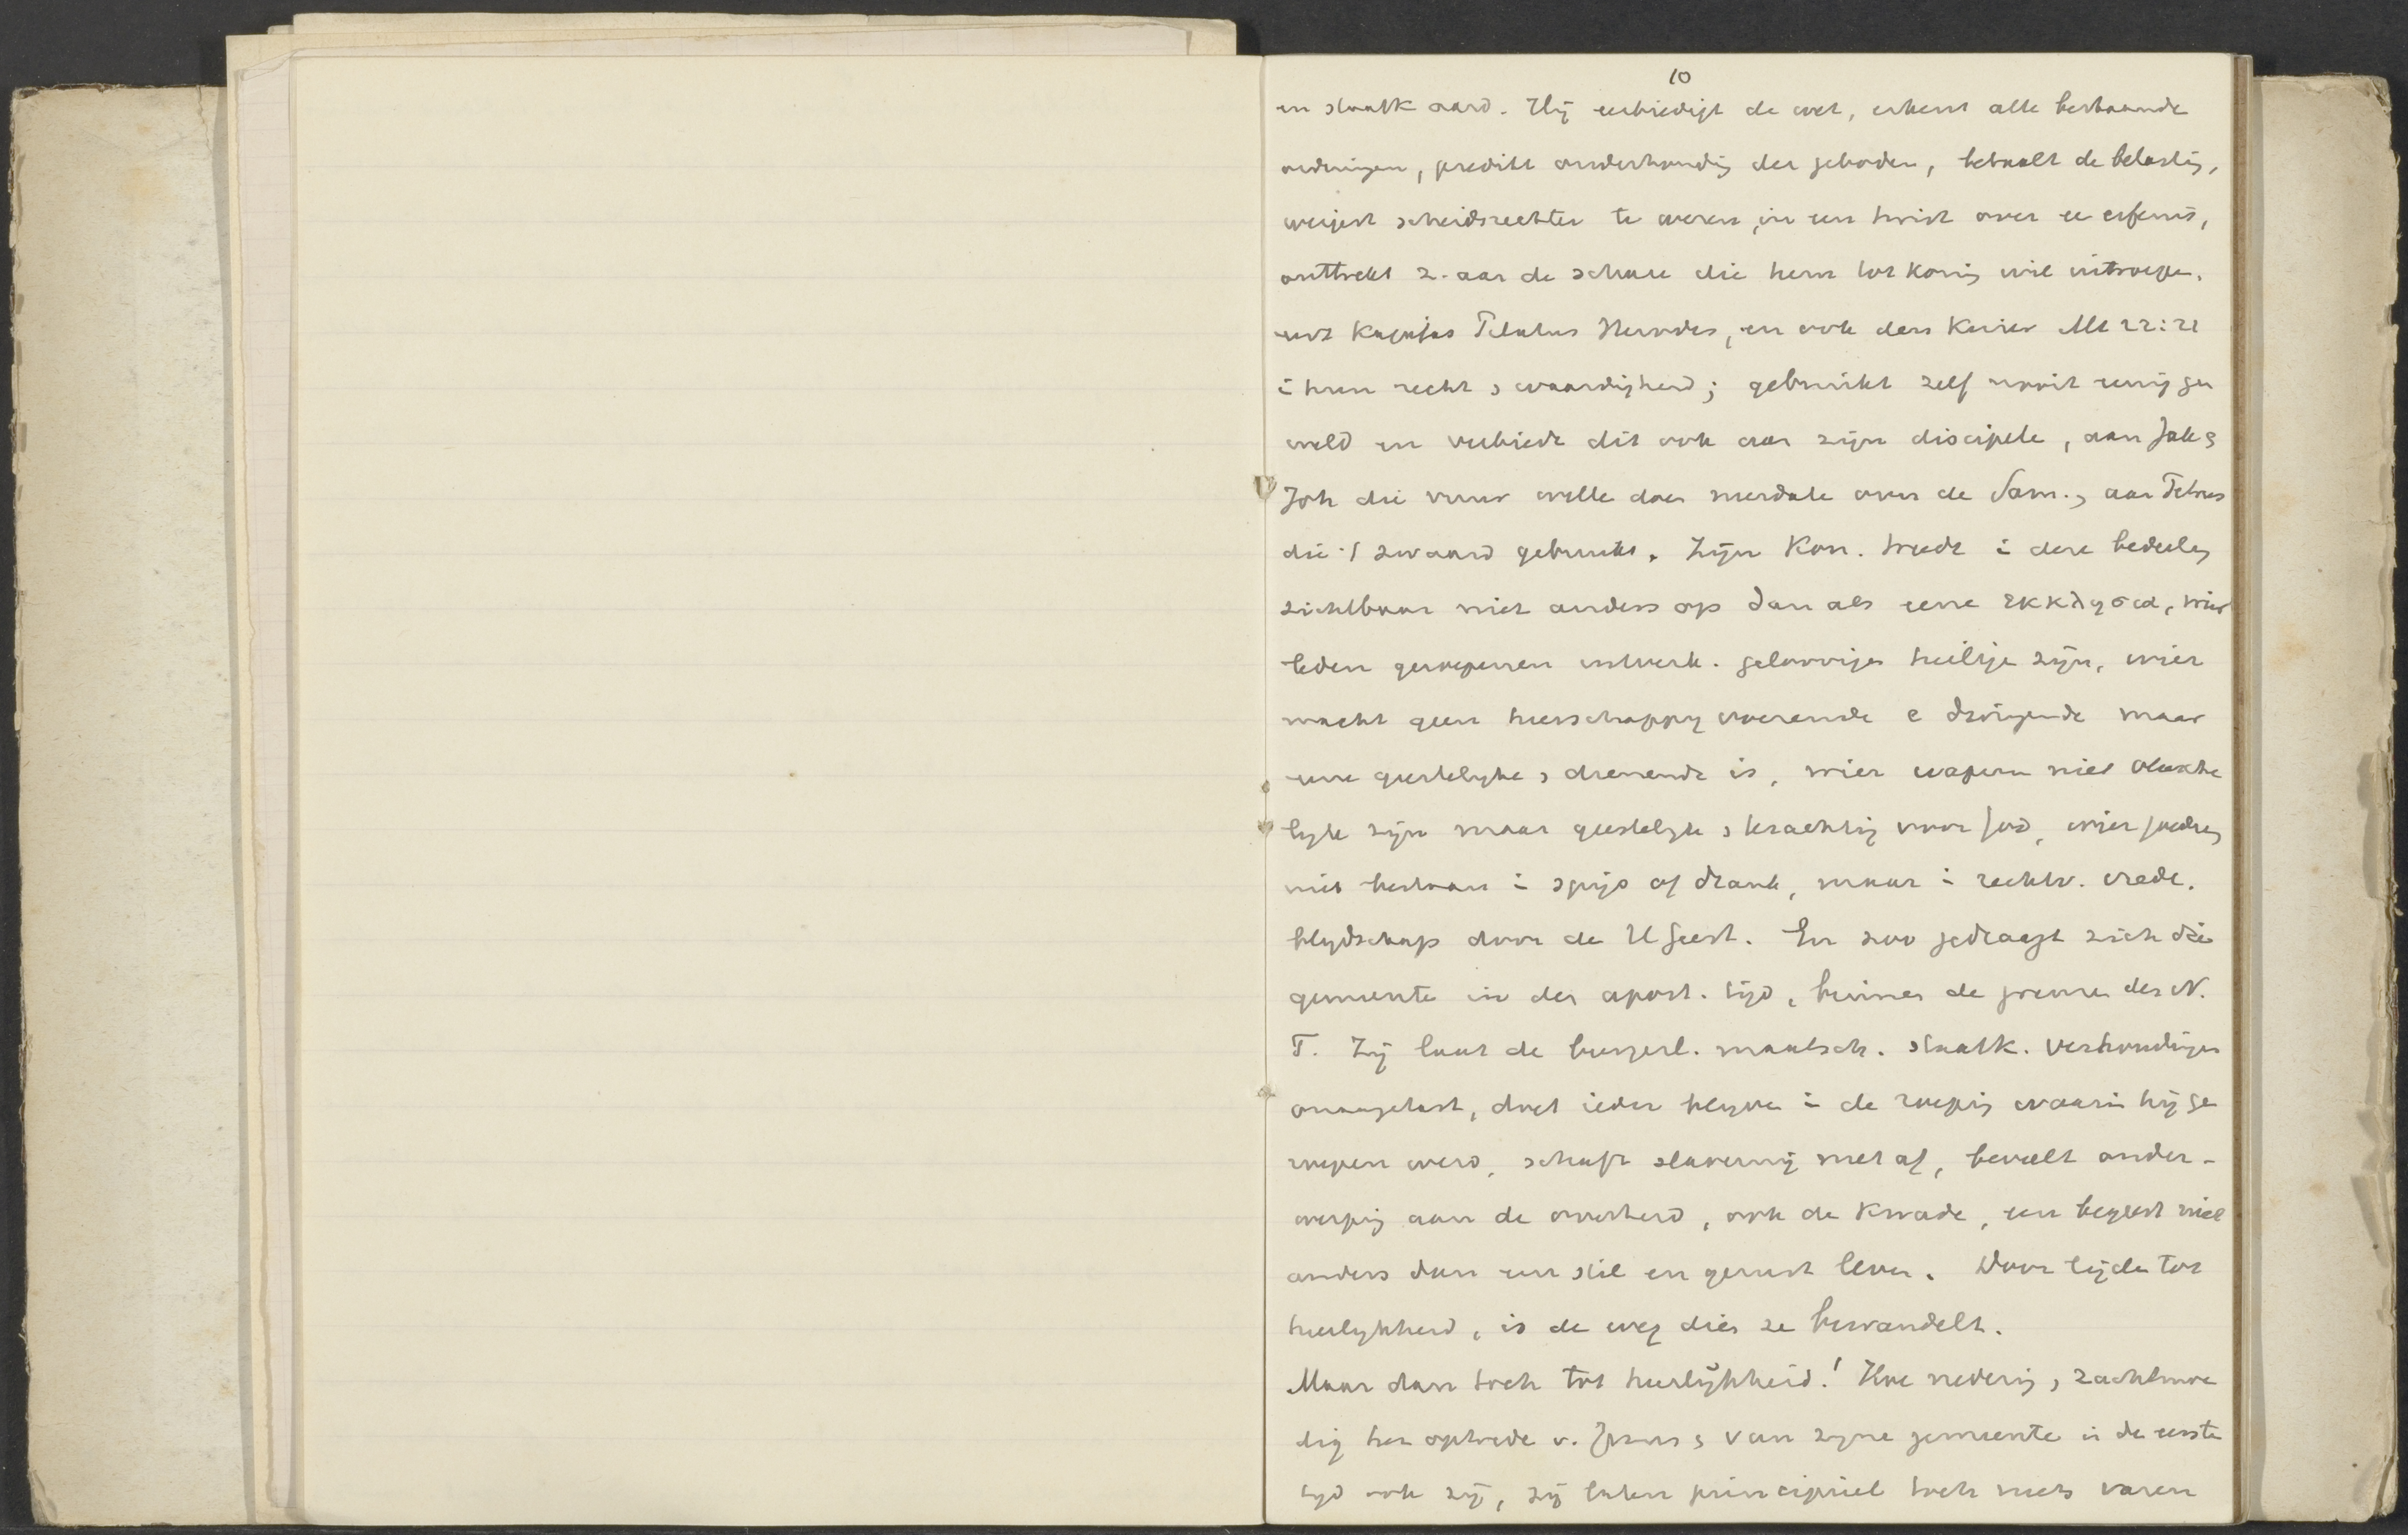 10
en staatk aard. Hij eerbiedigt de wet, erkent alle bestaande
ordeningen, predikt onderhoudig der geboden, betaalt de belastig,
weigert scheidsrechter te wezen, in een twist over ee erfenis,
onttrekt z. aan de schare die hem tot konig wil uitroepe,
eert Kajafas Pilatus Herodes, en ook den Keizer Mt 22:21
i hun recht & waardigheid; gebruikt zelf nooit eenig ge
weld en verbiedt dit ook aan zijn discipele, aan Jak &
Joh die vuur wille doen nerdale over de Sam., aan Petrus
die 't zwaard gebruikt. Zijn Kon. treedt i deze bedeelig
zichtbaar niet anders op dan als eene εκκλησια, wier
leden geroepenen uitverk. geloovigen heilige zijn, wier
macht geen heerschappy voerende e dwingende maar
eene geestelyke & dienende is, wier wapenen niet vleesche
lyk zijn maar geestelyk & krachtig voor God, wier goedre
niet bestaan i spijs of drank, maar i rechtv. vrede.
blydschap door de H Geest. En zoo gedraagt zich die
gemeente in den apost. tijd, binnen de grenzen des N.
T. Zij laat de burgerl. maatsch. staatk. verhoudingen
onaangetast, doet ieder blyven i de roepig waarin hij ge
roepen werd, schaft slavernij niet af, beveelt onder-
werpig aan de overheid, ook de kwade, en begeert niet
anders dan een stil en gerust leven. Door lijde tot
heerlykheid, is de weg dien ze bewandelt.
Maar dan toch tot heerlijkheid! Hoe nederig & zachtmoe
dig het optrede v. Jezus & van zyne gemeente in de eerste
tyd ook zij, zij laten principieel toch niets varen